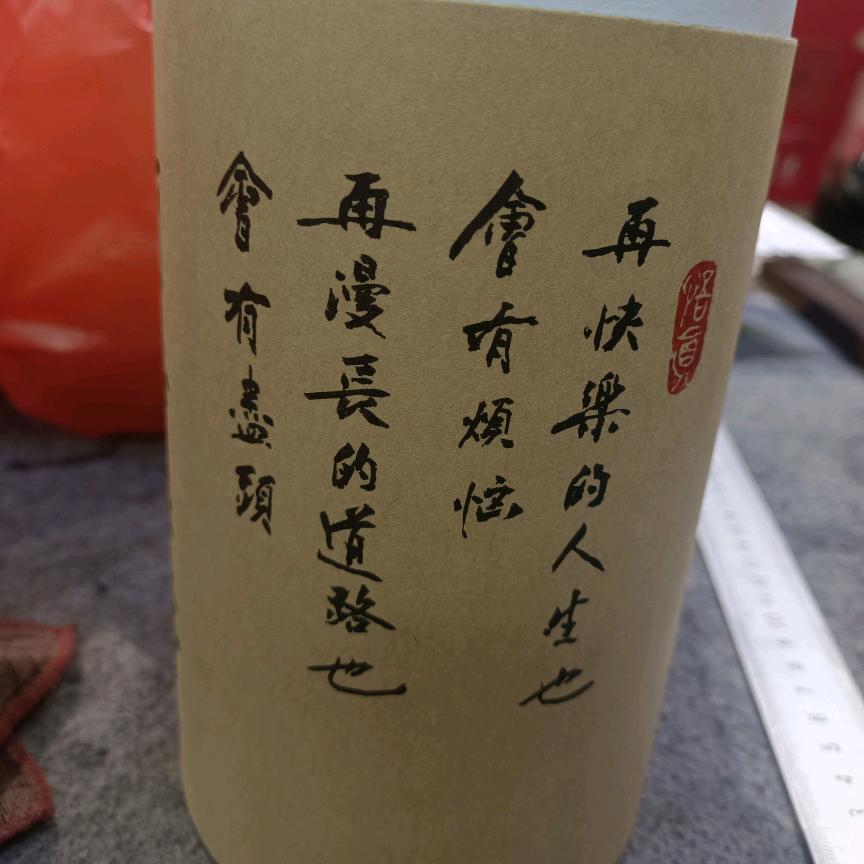 再快樂的人生也
會有煩惱
再漫長的道路也
會有盡頭